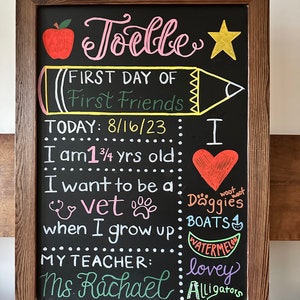 Joelle
FIRST DAY OF
First Friends
TODAY: 8/16/23
I am 1 3/4 yrs old
I want to be a
vet
when I grow up
MY TEACHER:
Ms. Rachael
I
woof woof
Doggies
BOATS
WATERMELON
lovey
Alligators